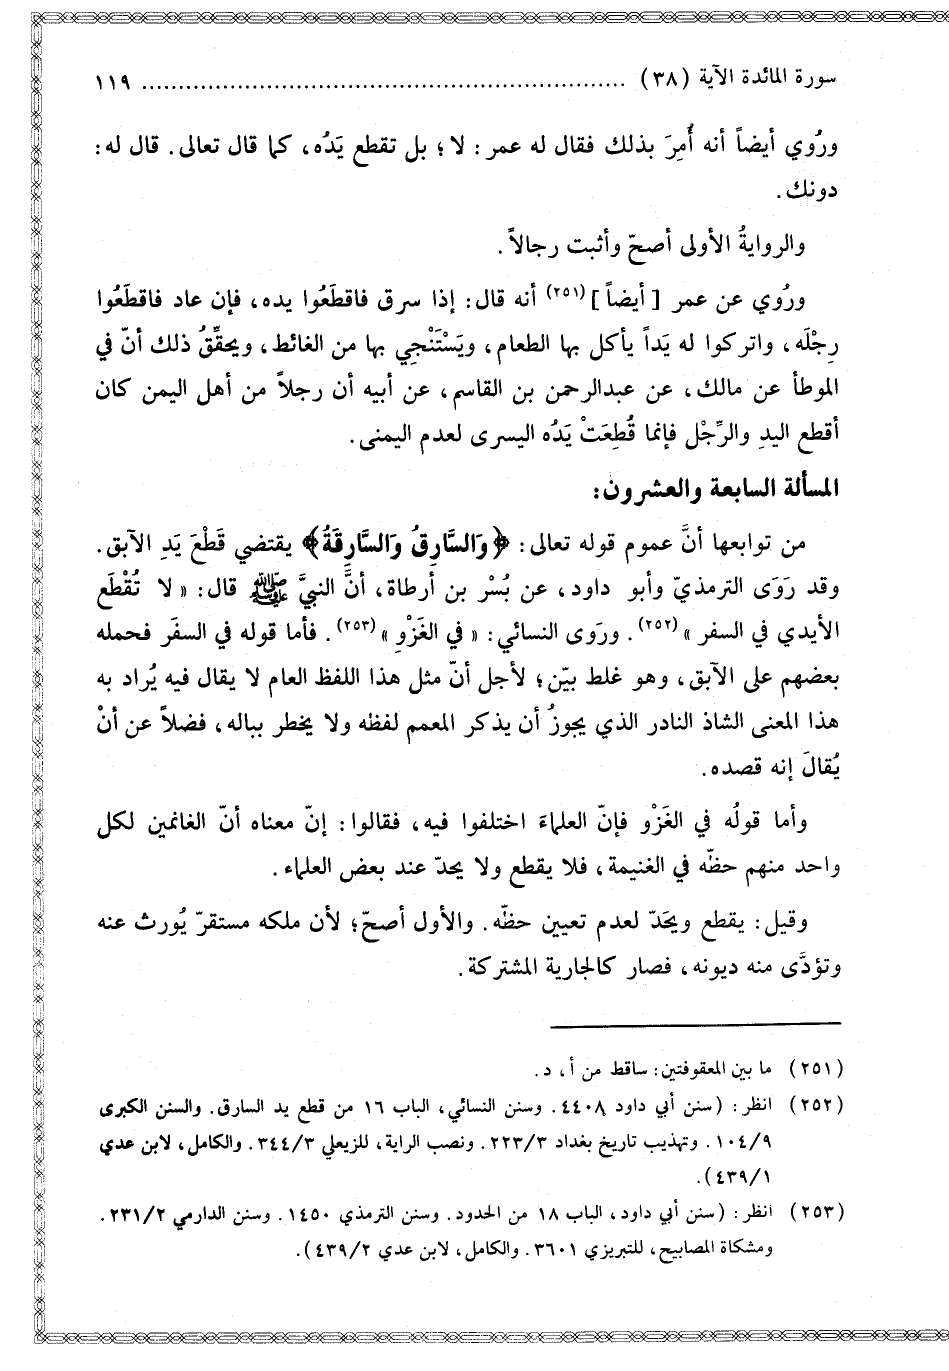 سورة المائدة الآية (٣٨) ................................................................ ١١٩
ورُوي أيضاً أنه أُمِرَ بذلك فقال له عمر: لا؛ بل تقطع يَدُه، كما قال تعالى. قال له:
دونك.
والروايةُ الأولى أصحّ وأثبت رجالاً.
ورُوي عن عمر [أيضاً](٢٥١) أنه قال: إذا سرق فاقطَعُوا يده، فإن عاد فاقطَعُوا
رِجْلَه، واتركوا له يَداً يأكل بها الطعام، ويَسْتَنْجِي بها من الغائط، ويحقِّقُ ذلك أنّ في
الموطأ عن مالك، عن عبدالرحمن بن القاسم، عن أبيه أن رجلاً من أهل اليمن كان
أقطع اليدِ والرِّجْل فإنما قُطِعَتْ يَدُه اليسرى لعدم اليمنى.
المسألة السابعة والعشرون:
من توابعها أنَّ عموم قوله تعالى: ﴿وَالسَّارِقُ وَالسَّارِقَةُ﴾ يقتضي قَطْعَ يَدِ الآبق.
وقد رَوَى الترمذيّ وأبو داود، عن بُسْر بن أرطاة، أنَّ النبيَّ ﷺ قال: «لا تُقْطَع
الأيدي في السفر»(٢٥٢). ورَوى النسائي: «في الغَزْوِ»(٢٥٣). فأما قوله في السفَر فحمله
بعضهم على الآبق، وهو غلط بيّن؛ لأجل أنّ مثل هذا اللفظ العام لا يقال فيه يُراد به
هذا المعنى الشاذ النادر الذي يجوزُ أن يذكر المعمم لفظه ولا يخطر بباله، فضلاً عن أنْ
يُقالَ إنه قصده.
وأما قولُه في الغَزْو فإنّ العلماءَ اختلفوا فيه، فقالوا: إنّ معناه أنّ الغانمين لكل
واحد منهم حظّه في الغنيمة، فلا يقطع ولا يحدّ عند بعض العلماء.
وقيل: يقطع ويحَدّ لعدم تعيين حظّه. والأول أصحّ؛ لأن ملكه مستقرّ يُورث عنه
وتؤدَّى منه ديونه، فصار كالجارية المشتركة.
(٢٥١) ما بين المعقوفتين: ساقط من أ، د.
(٢٥٢) انظر: (سنن أبي داود ٤٤٠٨. وسنن النسائي، الباب ١٦ من قطع يد السارق. والسنن الكبرى
١٠٤/٩. وتهذيب تاريخ بغداد ٢٢٣/٣. ونصب الراية، للزيعلي ٣٤٤/٣. والكامل، لابن عدي
٤٣٩/١).
(٢٥٣) انظر: (سنن أبي داود، الباب ١٨ من الحدود. وسنن الترمذي ١٤٥٠. وسنن الدارمي ٢٣١/٢.
ومشكاة المصابيح، للتبريزي ٣٦٠١. والكامل، لابن عدي ٤٣٩/٢).